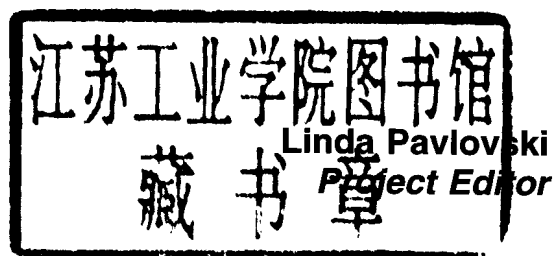 江苏工业学院图书馆
Linda Pavlovski
藏书章
Project Editor